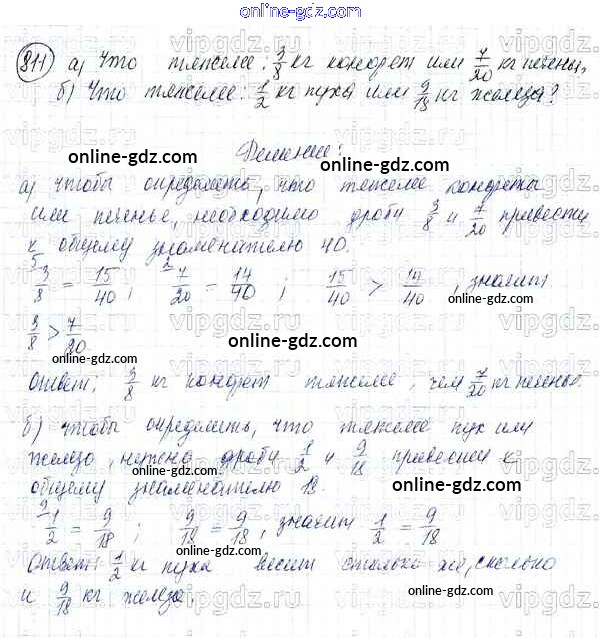 online-gdz.com
311) а) Что тяжелее: 3/8 кг конфет или 7/20 кг печенья,
б) Что тяжелее: 1/2 кг пуха или 9/18 кг железа?
Решение:
online-gdz.com
online-gdz.com
а) чтобы определить, что тяжелее конфеты
или печенье, необходимо дроби 3/8 и 7/20 привести
к общему знаменателю 40.
online-gdz.com
3/8 = 15/40; 7/20 = 14/40; 15/40 > 14/40, значит
online-gdz.com
3/8 > 7/20
online-gdz.com
Ответ: 3/8 кг конфет тяжелее, чем 7/20 кг печенья.
б) чтобы определить, что тяжелее пух или
железо, нужно дроби 1/2 и 9/18 привести к
online-gdz.com
общему знаменателю 18.
online-gdz.com
1/2 = 9/18; 9/18 = 9/18, значит 1/2 = 9/18
online-gdz.com
Ответ: 1/2 кг пуха весит столько же, сколько
и 9/18 кг железа.
online-gdz.com